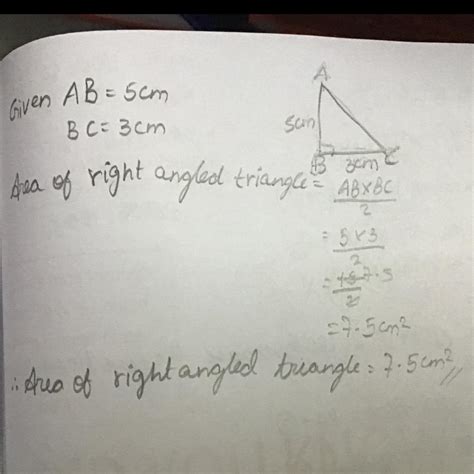 Given AB = 5cm
BC = 3cm
A
5cm
B 3cm C
Area of right angled triangle = AB×BC
2
= 5×3
2
= 15 7.5
2
= 7.5cm²
∴ Area of right angled triangle = 7.5cm²//